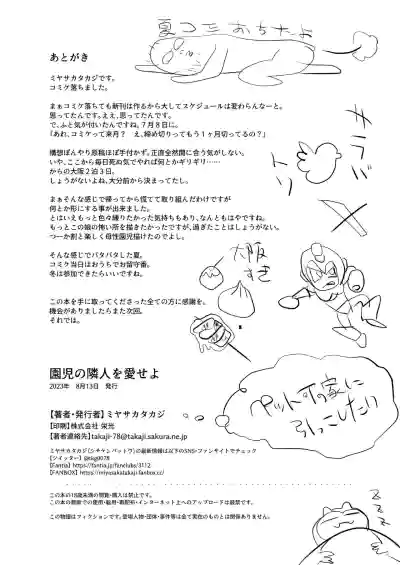 夏コミおちたよ
あとがき
ミヤサカタカジです。
コミケ落ちました。
まぁコミケ落ちても新刊は作るから大してスケジュールは変わらんなーと。
思ってたんです。ええ、思ってたんです。
で、ふと気が付いたんですね。7月8日に。
「あれ、コミケって来月?　え、締め切りってもう1ヶ月切ってるの?」
構想ぼんやり原稿ほぼ手付かず。正直全然間に合う気がしない。
いや、ここから毎日死ぬ気でやれば何とかギリギリ……
からの大阪2泊3日。
しょうがないよね、大分前から決まってたし。
まぁそんな感じで帰ってから慌てて取り組んだわけですが
何とか形にする事が出来ました。
とはいえもっと色々練りたかった気持ちもあり、なんともはやですね。
もっとこの娘の怖い所を描きたかったですが、過ぎたことはしょうがない。
つーか割と楽しく母性園児描けたのでよし。
そんな感じでバタバタした夏。
コミケ当日はおうちでお留守番。
冬は参加できたらいいですね。
この本を手に取ってくださった全ての方に感謝を。
機会がありましたらまた次回。
それでは。
大阪
すき
園児の隣人を愛せよ
2023年　8月13日　発行
【著者・発行者】ミヤサカタカジ
【印刷】株式会社 栄光
【著者連絡先】takaji-78@takaji.sakura.ne.jp
ミヤサカタカジ(シチケンバットウ)の最新情報は以下のSNS・ファンサイトでチェック
【Fantia】 https://fantia.jp/fanclubs/3112
【FANBOX】 https://miyasakatakaji.fanbox.cc/
この本の18歳未満の閲覧・購入は禁止です。
この本の無断での使用・転用・再配布・インターネット上へのアップロードは厳禁です。
この物語はフィクションです。登場人物・団体・事件等は全て実在のものとは関係ありません。
ペットの家に
引っこしたい
ZZZ